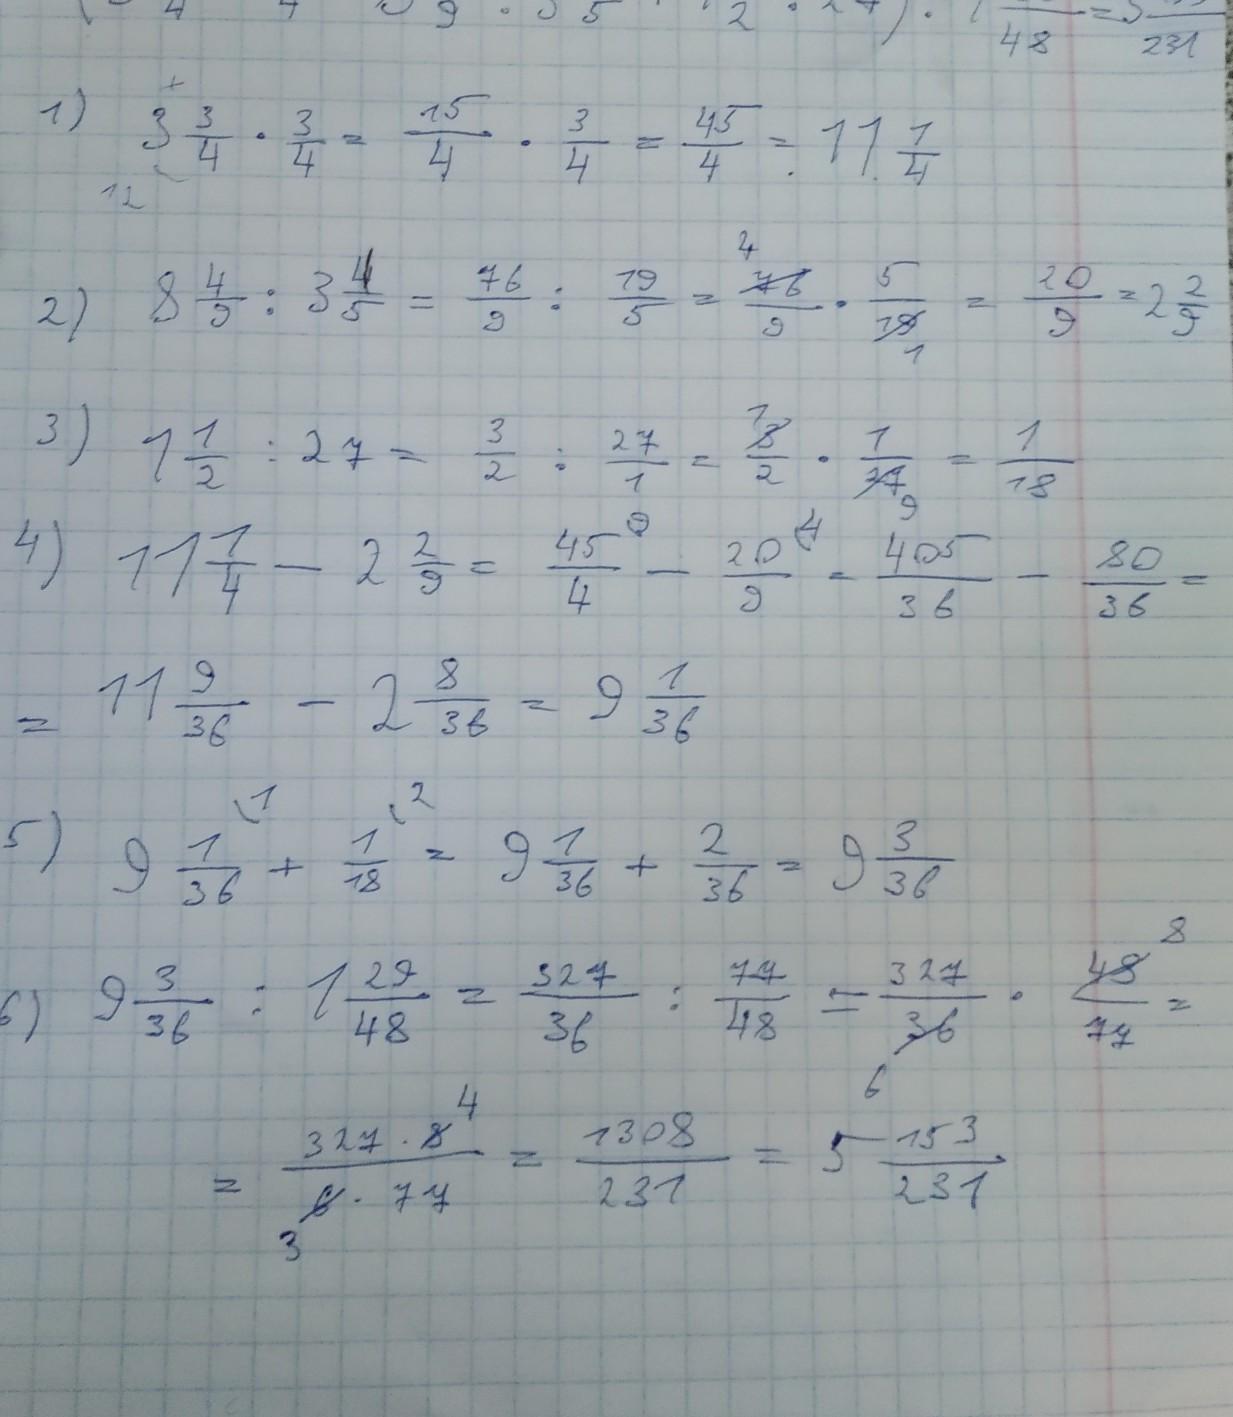 48 = 5 231
1) 3 3/4 · 3/4 = 15/4 · 3/4 = 45/4 = 11 1/4
12
2) 8 4/9 : 3 4/5 = 76/9 : 19/5 = 4 76/9 · 5/19 1 = 20/9 = 2 2/9
3) 1 1/2 : 27 = 3/2 : 27/1 = 1 3/2 · 1/27 9 = 1/18
4) 11 1/4 - 2 2/9 = 45/4 9 - 20/9 4 = 405/36 - 80/36 =
= 11 9/36 - 2 8/36 = 9 1/36
5) 9 1/36 1 + 1/18 2 = 9 1/36 + 2/36 = 9 3/36
6) 9 3/36 : 1 29/48 = 327/36 : 77/48 = 327/36 6 · 48/77 8 =
= 327 · 8 4/6 · 77 3 = 1308/231 = 5 153/231